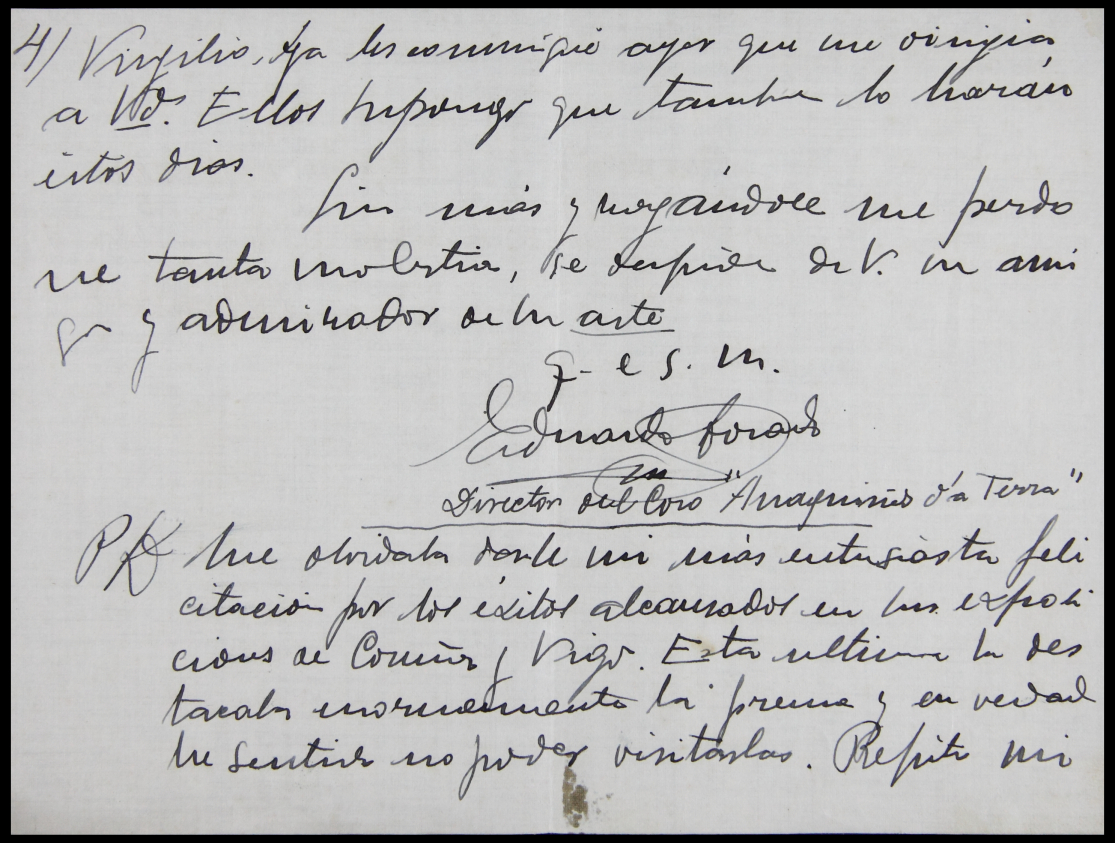 4) Virgilio, ya les comuniqué ayer que me dirigía
a Vds. Ellos supongo que tambien lo harán
éstos dias.
Sin más y rogándole me perdo
ne tanta molestia, se despide de V. un ami
go y admirador de su arte
q. e s. m.
Eduardo
Director del Coro "Anaquiños d'a Terra"
PD Me olvidaba darle mi más entusiasta feli
citación por los éxitos alcanzados en sus exposi
ciones de Coruña y Vigo. Esta ultima la des
tacaba enormemente la prensa y en verdad
he sentido no poder visitarlas. Repito mi